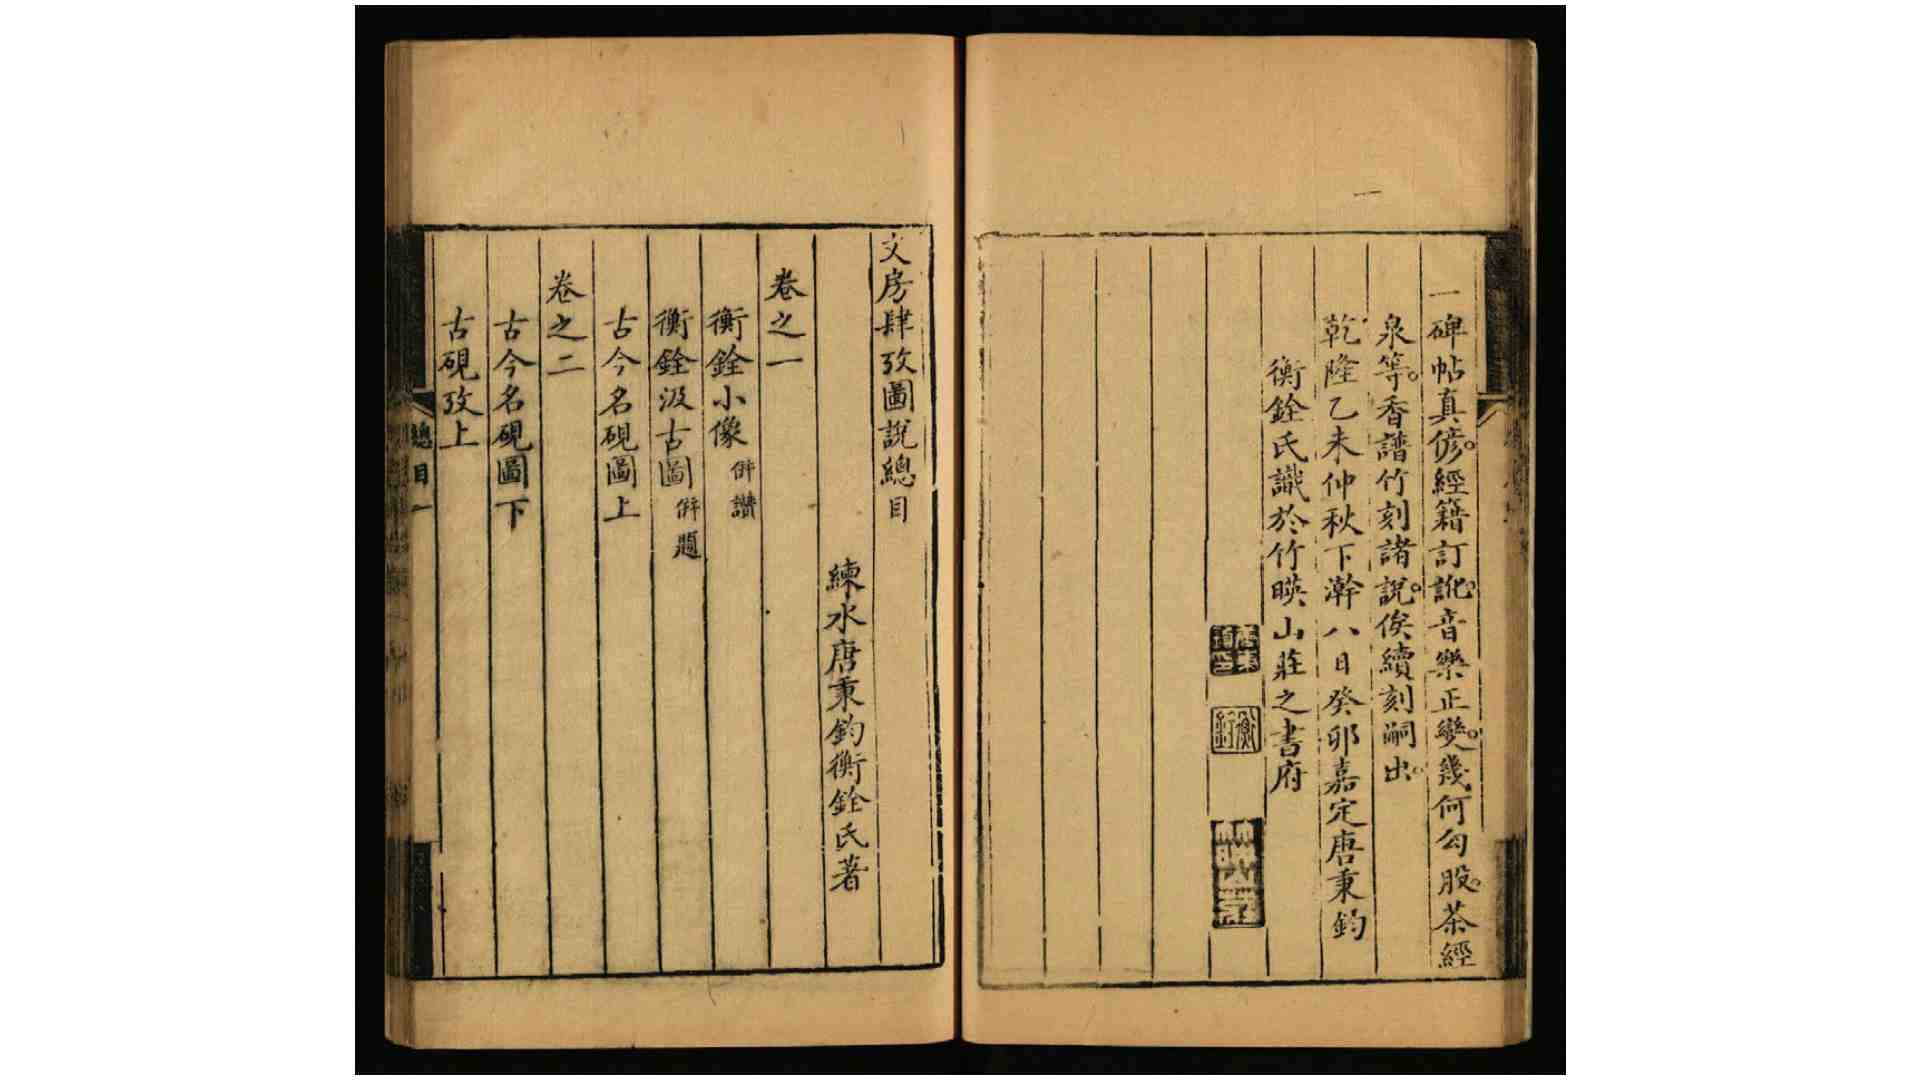 一碑帖真偐。經籍訂訛。音樂正變。幾何勾股。茶經
泉等。香譜竹刻諸說。俟續刻嗣出。
乾隆乙未仲秋下澣八日癸卯嘉定唐秉鈞
衡銓氏識於竹暎山莊之書府
文房肆攷圖說總目
練水唐秉鈞衡銓氏著
卷之一
衡銓小像併讚
衡銓汲古圖併題
古今名硯圖上
卷之二
古今名硯圖下
古硯攷上
總目一